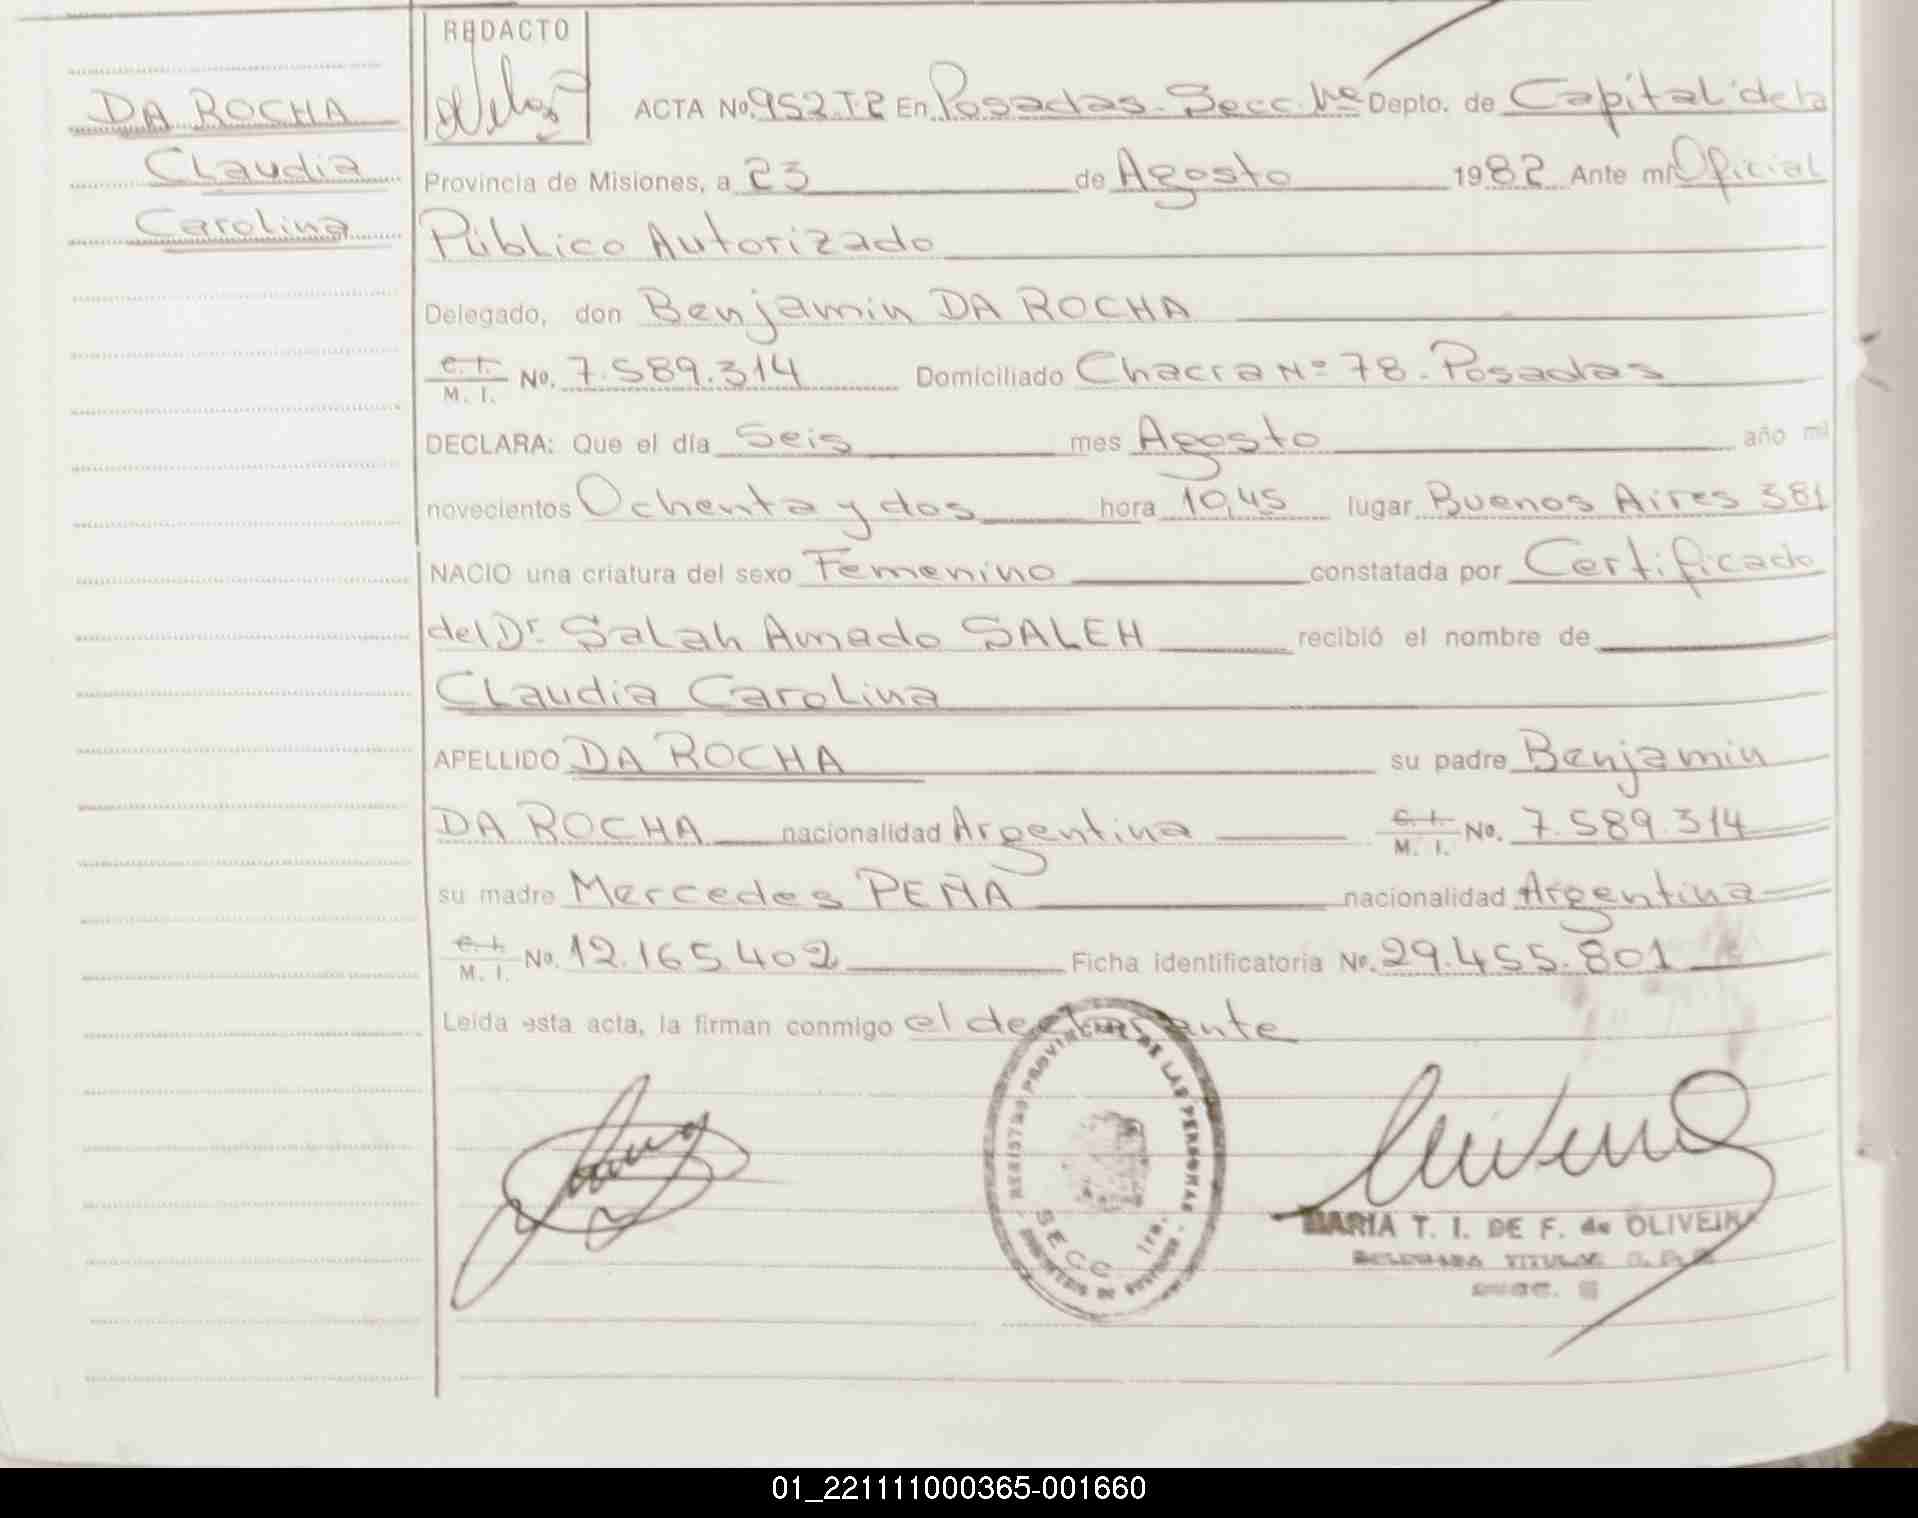 DA ROCHA
Claudia
Carolina
REDACTO
ACTA No. 952 T-2 En Posadas. Secc. 1ra Depto. de Capital de la
Provincia de Misiones, a 23 de Agosto 1982 Ante mí Oficial
Público Autorizado
Delegado, don Benjamin DA ROCHA
C. I. M. I. No. 7.589.314 Domiciliado Chacra Nº 78. Posadas
DECLARA: Que el día Seis mes Agosto año mil
novecientos Ochenta y dos hora 10,45 lugar Buenos Aires 381
NACIO una criatura del sexo Femenino constatada por Certificado
del Dr. Salah Amado SALEH recibió el nombre de
Claudia Carolina
APELLIDO DA ROCHA su padre Benjamin
DA ROCHA nacionalidad Argentina C. I. M. I. No. 7.589.314
su madre Mercedes PEÑA nacionalidad Argentina
C. I. M. I. No. 12.165.402 Ficha identificatoria No. 29.455.801
Leída esta acta, la firman conmigo el declarante
REGISTRO PROVINCIAL DE LAS PERSONAS
SECC. 1ra.
MARIA T. I. DE F. de OLIVEIRA
DELEGADA TITULAR
01_221111000365-001660